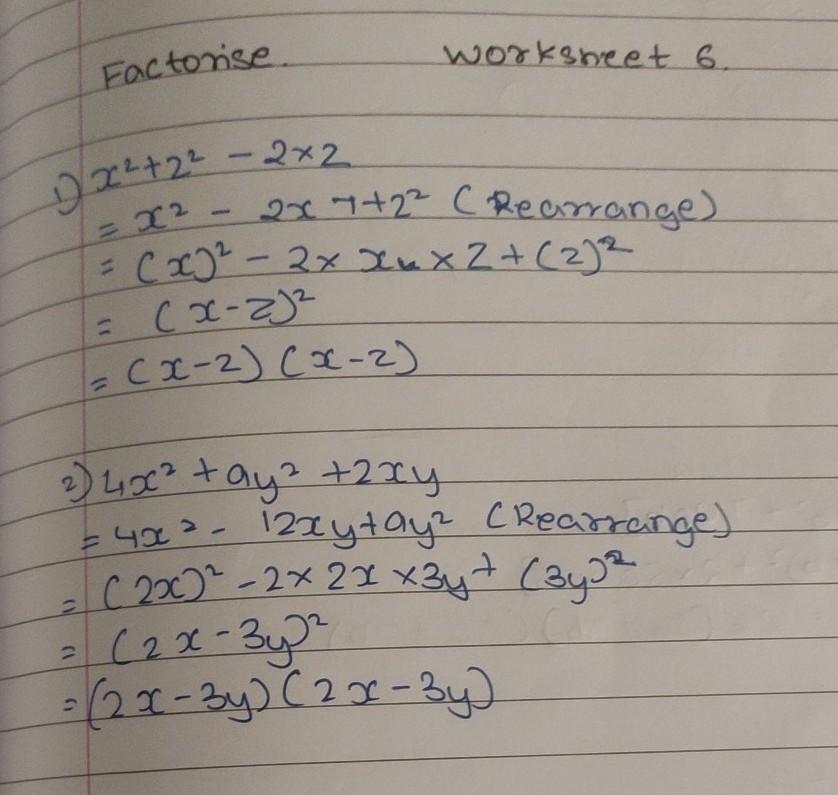 Factorise. Worksheet 6.
1) x² + 2² - 2x2
= x² - 2x 7 + 2² (Rearrange)
= (x)² - 2 × x × 2 + (2)²
= (x-2)²
= (x-2) (x-2)
2) 4x² + 9y² + 2xy
= 4x² - 12xy + 9y² (Rearrange)
= (2x)² - 2 × 2x × 3y + (3y)²
= (2x - 3y)²
= (2x - 3y) (2x - 3y)